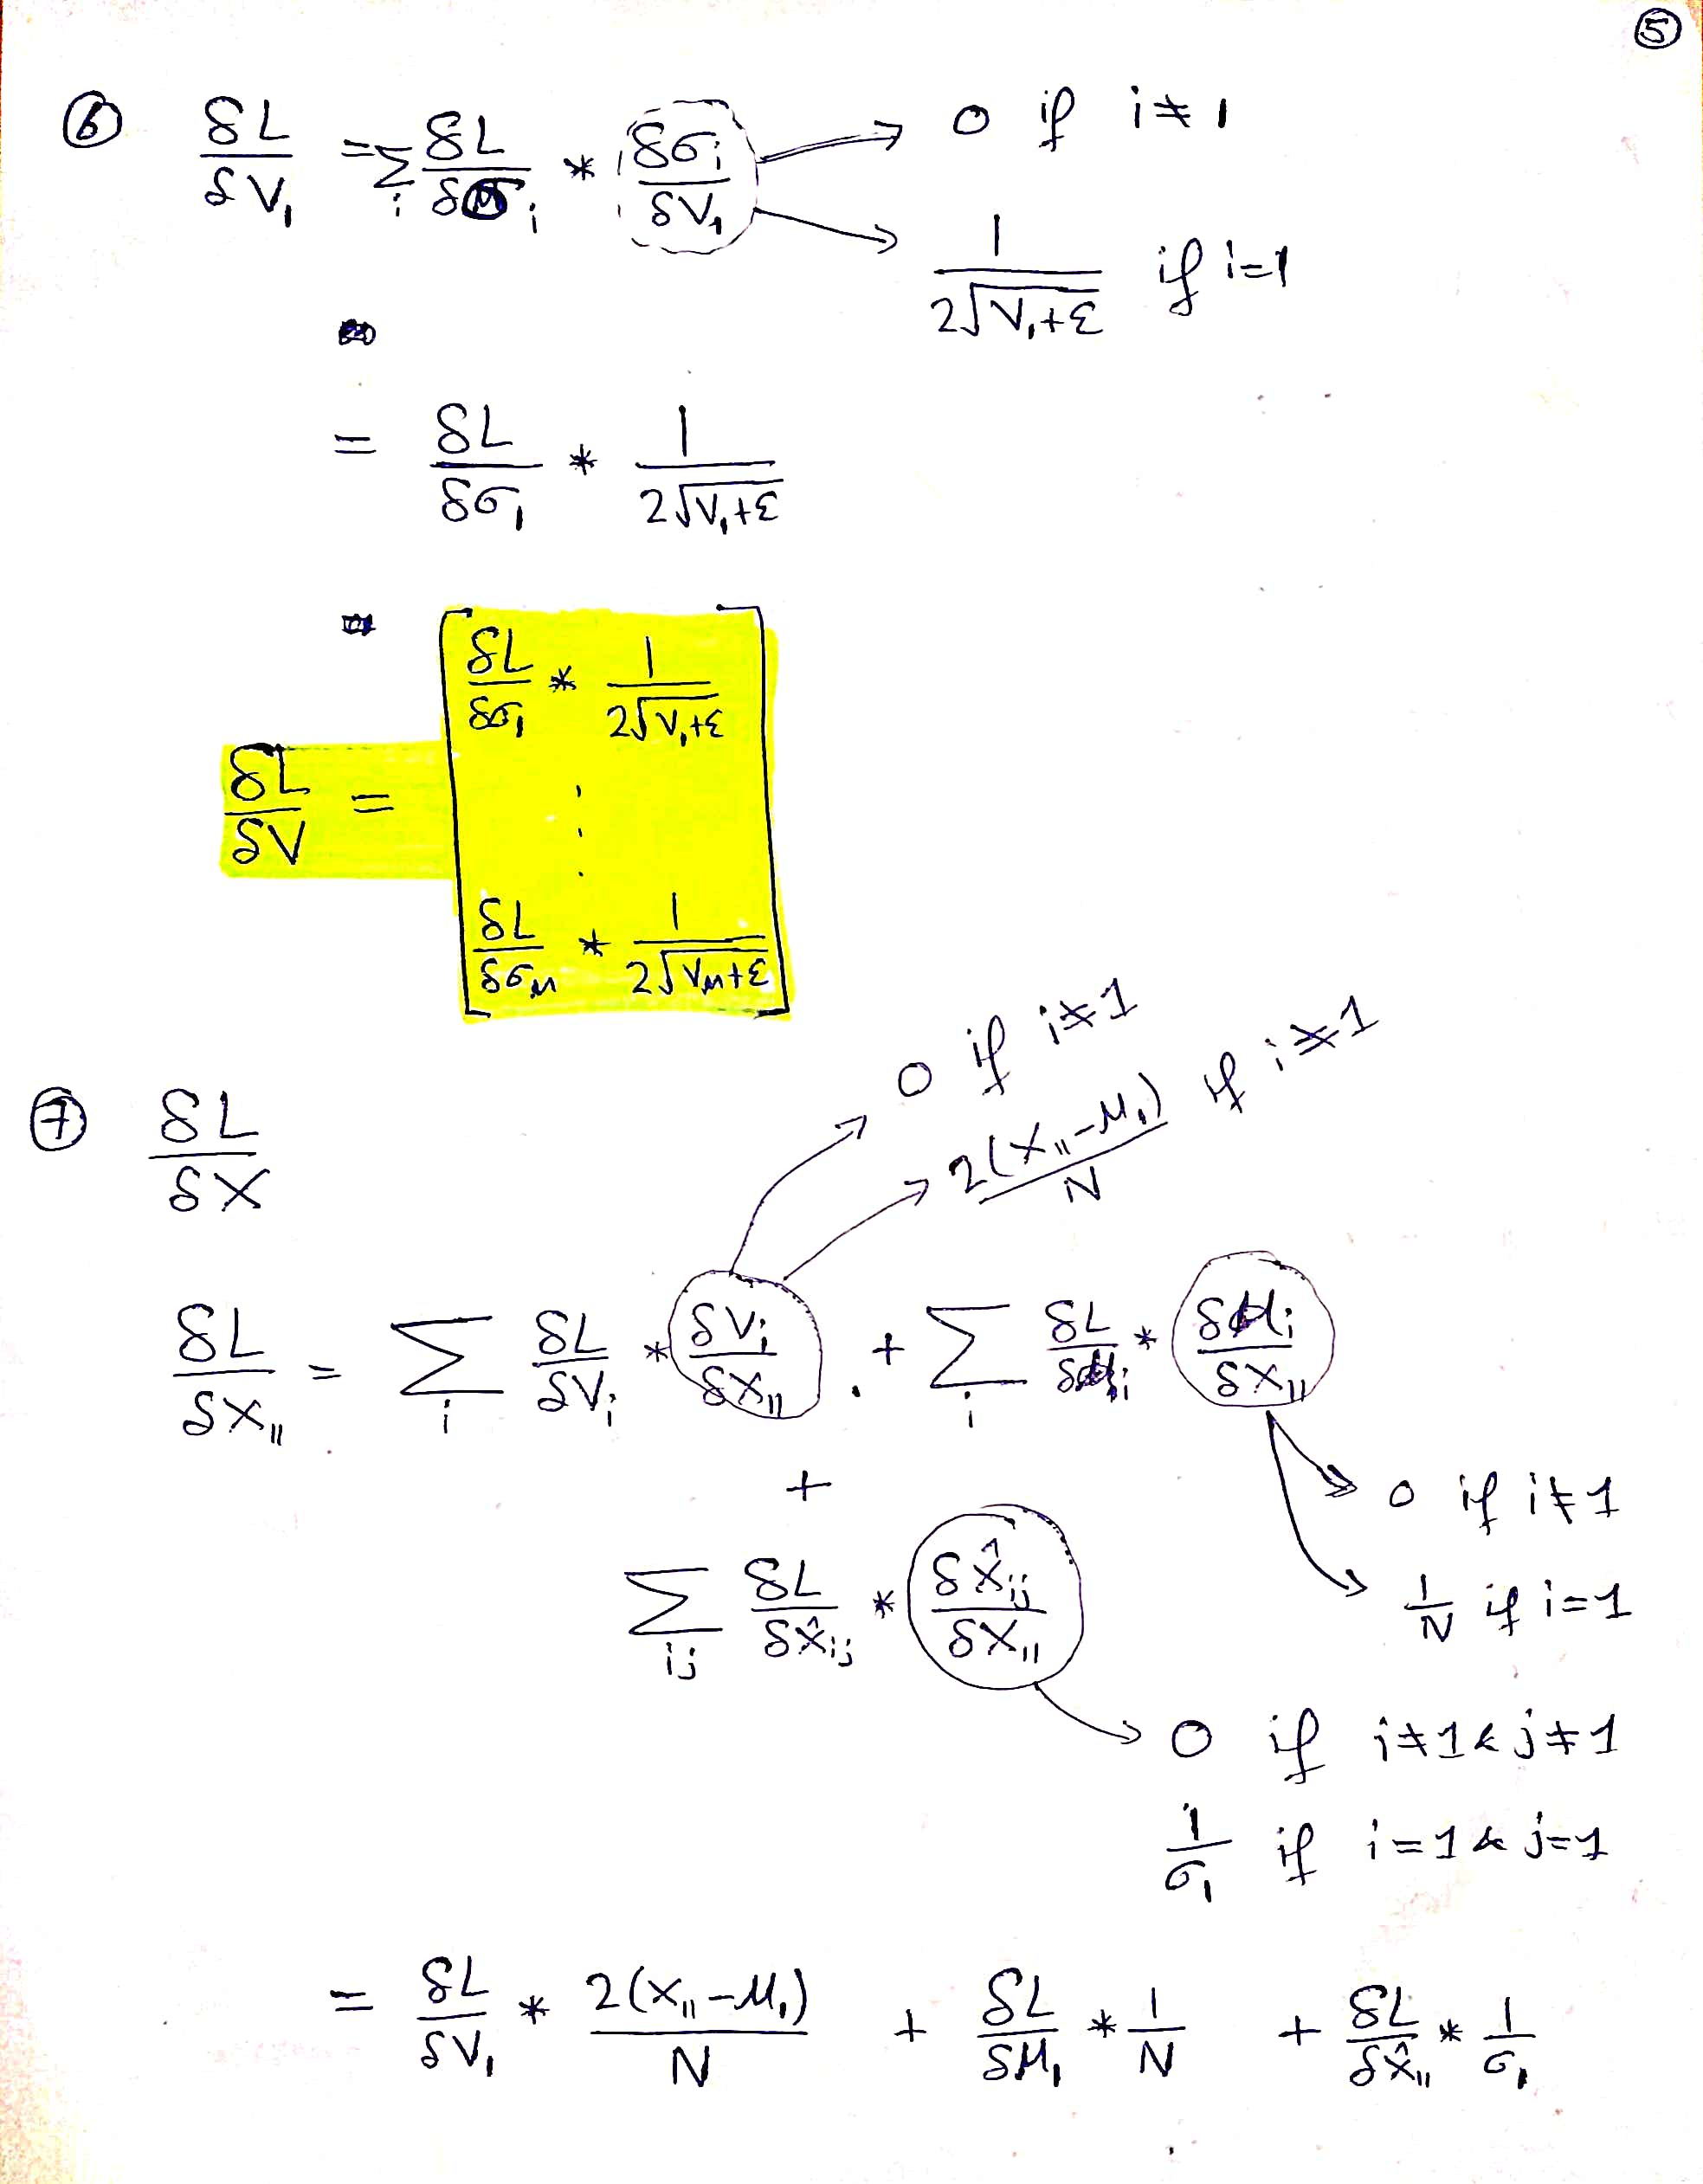 ⑤
⑥ δL/δV₁ = Σᵢ δL/δσᵢ * δσᵢ/δV₁ → 0 if i≠1
→ 1/(2√(V₁+ε)) if i=1
= δL/δσ₁ * 1/(2√(V₁+ε))
δL/δV = [ δL/δσ₁ * 1/(2√(V₁+ε))
⋮
δL/δσ_M * 1/(2√(V_M+ε)) ]
⑦ δL/δX
→ 0 if i≠1
→ 2(X₁₁-μ₁)/N if i≠1
δL/δX₁₁ = Σᵢ δL/δVᵢ * δVᵢ/δX₁₁ + Σᵢ δL/δμᵢ * δμᵢ/δX₁₁
→ 0 if i≠1
→ 1/N if i=1
+
Σᵢⱼ δL/δX̂ᵢⱼ * δX̂ᵢⱼ/δX₁₁
→ 0 if i≠1 & j≠1
1/σ₁ if i=1 & j=1
= δL/δV₁ * 2(X₁₁-μ₁)/N + δL/δμ₁ * 1/N + δL/δX̂₁₁ * 1/σ₁